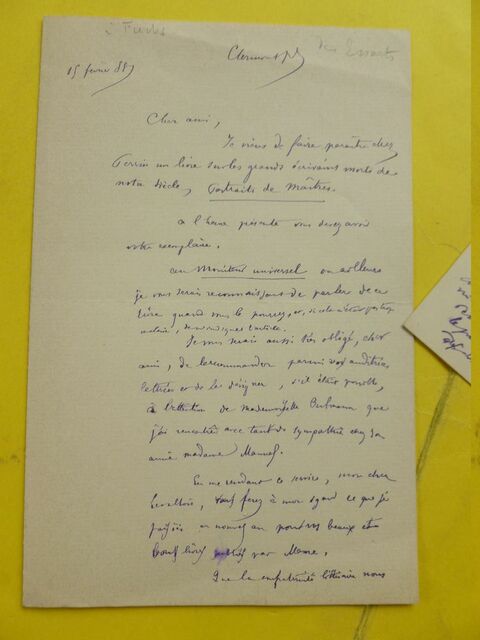 à Fuchs
des Essarts
15 février 88
Clermont
Cher ami,
Je viens de faire paraître chez
Perrin un livre sur les grands écrivains morts de
notre siècle, Portraits de Maîtres.
à l'heure présente vous devez avoir
votre exemplaire.
au Moniteur universel ou ailleurs
je vous serais reconnaissant de parler de ce
livre quand vous le pourrez, et, si cela n'était pas trop
l'article.
Je vous serais aussi très obligé, cher
ami, de le recommander parmi vos auditrices
lettrées et de le désigner, s'il était possible,
à l'attention de mademoiselle que
j'ai rencontrée avec tant de sympathie chez son
amie madame Manuel.
En me rendant ce service, mon cher
vous ferez à mon égard ce que je
faisais en nommant au beaux et
bons livres par Mame.
Que la confraternité littéraire nous